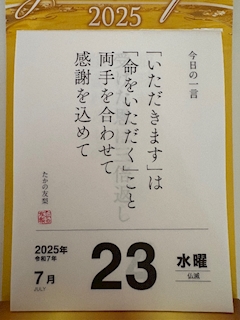 2025
今日の一言
「いただきます」は
「命をいただく」こと
両手を合わせて
感謝を込めて
たかの友梨
2025年
令和7年
7月
JULY
23
水曜
仏滅